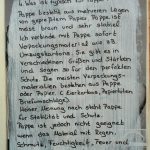 4. Was ist typisch für Pappe?
Pappe besteht aus mehreren Lagen
von gepreßtem Papier. Pappe ist
meist braun und sehr stabil.
Ich verbinde mit Pappe sofort
Verpackungsmaterial wie z.B.
Umzugskartons. Sie gib es in
verschiedenen Größen und Stärken
und sorgen so für den perfekten
Schutz. Die meisten Verpackungs-
materialien bestehen aus Pappe
oder Papier (Eierkarton, Papiertüten
Briefumschläge).
Meiner Meinung nach steht Pappe
für Stabilität und Schutz.
Pappe ist jedoch nicht geeignet
wenn das Material mit Regen,
Schmutz, Feuchtigkeit, Feuer und